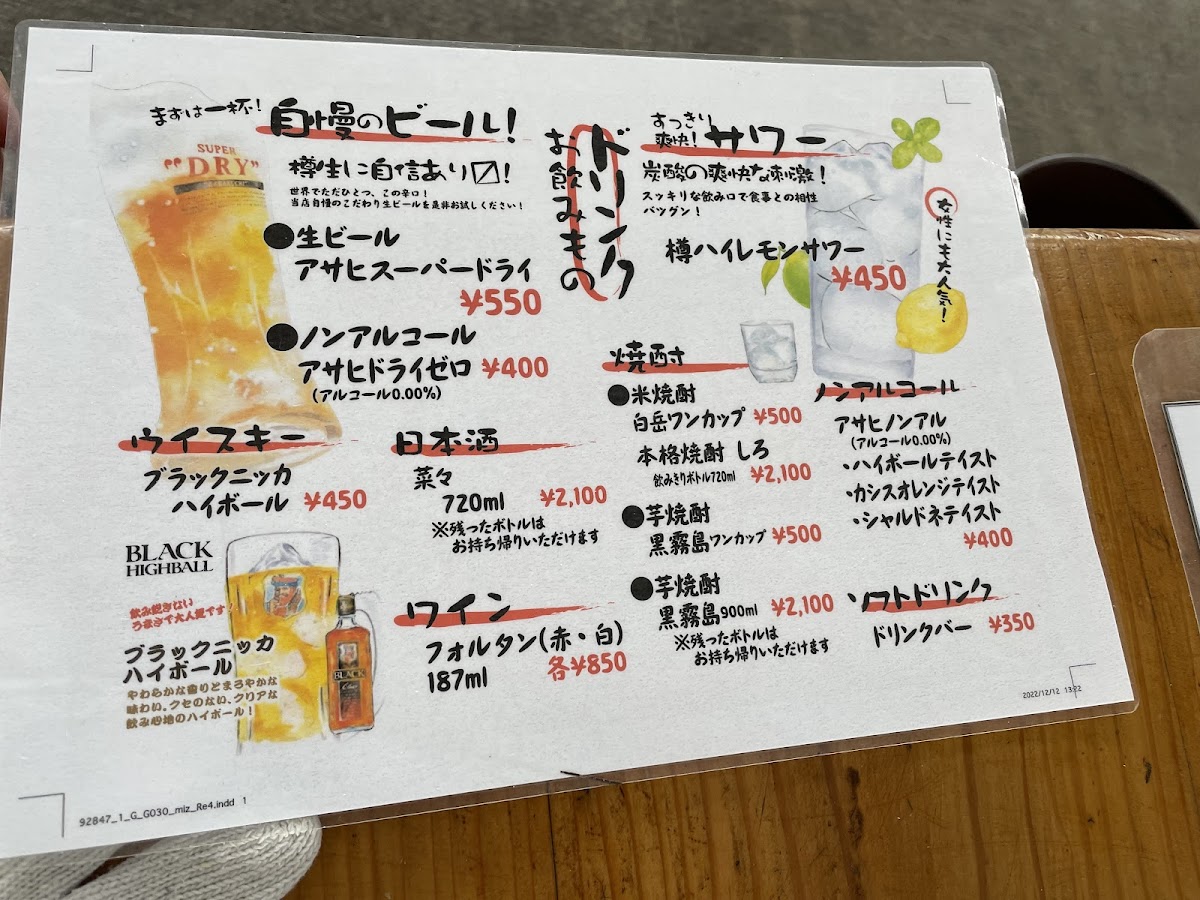 まずは一杯!
自慢のビール!
樽生に自信あり〼!
世界でただひとつ、この辛口!
当店自慢のこだわり生ビールを是非お試しください!
SUPER
"DRY"
●生ビール
アサヒスーパードライ
¥550
●ノンアルコール
アサヒドライゼロ ¥400
(アルコール0.00%)
ドリンク
お飲みもの
すっきり
爽快!
サワー
炭酸の爽快な刺激!
スッキリな飲み口で食事との相性
バツグン!
樽ハイレモンサワー
¥450
女性にも大人気!
ウイスキー
ブラックニッカ
ハイボール ¥450
BLACK
HIGHBALL
飲み飽きない
うまさで大人気です!
ブラックニッカ
ハイボール
やわらかな香りとまろやかな
味わい。クセのない、クリアな
飲み心地のハイボール!
BLACK
日本酒
菜々
720ml ¥2,100
※残ったボトルは
お持ち帰りいただけます
ワイン
フォルタン(赤・白)
187ml 各¥850
焼酎
●米焼酎
白岳ワンカップ ¥500
本格焼酎 しろ
飲みきりボトル720ml ¥2,100
●芋焼酎
黒霧島ワンカップ ¥500
●芋焼酎
黒霧島900ml ¥2,100
※残ったボトルは
お持ち帰りいただけます
ノンアルコール
アサヒノンアル
(アルコール0.00%)
・ハイボールテイスト
・カシスオレンジテイスト
・シャルドネテイスト
¥400
ソフトドリンク
ドリンクバー ¥350
2022/12/12 13:22
92847_1_G_G030_miz_Re4.indd 1